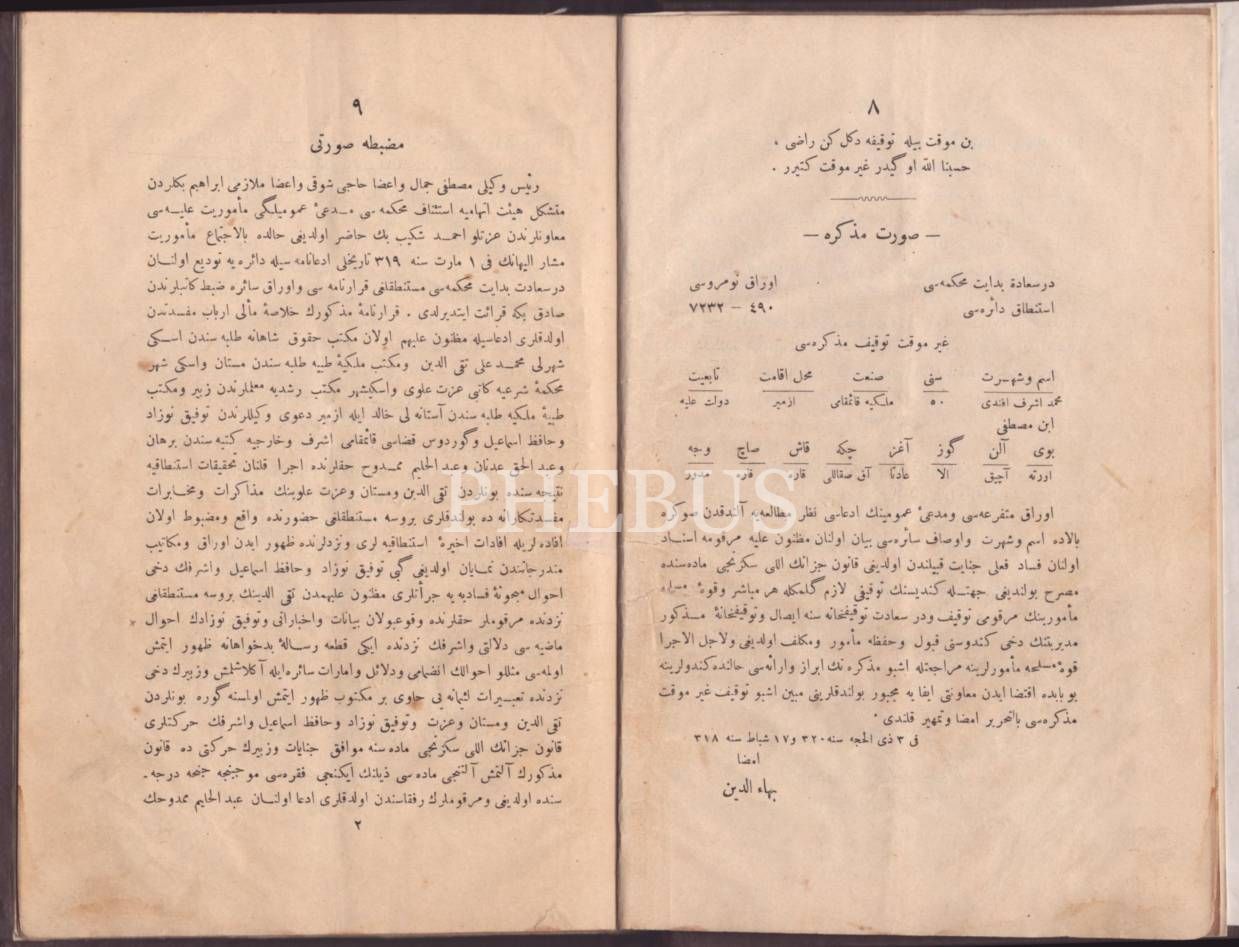 ٨
بن موقت بيله توقيفه دكل كن راضى ،
حسبنا الله او گيدر غير موقت كتيرر .
— صورت مذكره —
درسعادة بدايت محكمه‌سى اوراق نومروسى
استنطاق دائره‌سى ٤٩٠ — ٧٢٣٢
غير موقت توقيف مذكره‌سى
اسم وشهرت سنى صنعت محل اقامت تابعيت
محمد اشرف افندى ٥٠ ملكيه قائمقامى ازمير دولت عليه
ابن مصطفى
بوى آلن گوز آغز چكه قاش صاچ وجه
اورته آچيق الا عادتا آق صقاللى قاره قاره مدور
اوراق متفرعه‌سى ومدعئ عمومينك ادعاسى نظر مطالعه‌يه آلندقدن صوكره
بالاده اسم وشهرت واوصاف سائره‌سى بيان اولنان مظنون عليه مرقومه اسناد
اولنان فساد فعلى جنايت قبيلندن اولديغى قانون جزانك اللى سكزنجى ماده‌سنده
مصرح بولنديغى جهتله كنديسنك توقيفى لازم گلمكله هر مباشر وقوۀ مسلحه
مأمورينك مرقومى توقيف ودر سعادت توقيفخانه سنه ايصال وتوقيفخانۀ مذكور
مديريتنك دخى كندوسنى قبول وحفظه مأمور ومكلف اولديغى ولاجل الاجرا
قوۀ مسلحه مأمورلرينه مراجعتله اشبو مذكره نك ابراز وارائه‌سى حالنده كندولرينه
بو بابده اقتضا ايدن معاونتى ايفا يه مجبور بولندقلرينى مبين اشبو توقيف غير موقت
مذكره‌سى بالتحرير امضا وتمهير قلندى .
فى ٣ ذى الحجه سنه ٣٢٠ و ١٧ شباط سنه ٣١٨
امضا
بهاء الدين
٩
مضبطه صورتى
رئيس وكيلى مصطفى جمال واعضا حاجى شوقى واعضا ملازمى ابراهيم بكلردن
متشكل هيئت اتهاميه استئناف محكمه سى مدعئ عموميلگى مأموريت عليه‌سى
معاونلرندن عزتلو احمد شكيب بك حاضر اولديغى حالده بالاجتماع مأموريت
مشار اليهانك فى ١ مارت سنه ٣١٩ تاريخلى ادعانامه سيله دائره يه توديع اولنان
درسعادت بدايت محكمه‌سى مستنطقلغى قرارنامه سى واوراق سائره ضبط كاتبلرندن
صادق بكه قرائت ايتديرلدى . قرارنامۀ مذكورك خلاصۀ مآلى ارباب مفسدتدن
اولدقلرى ادعاسيله مظنون عليهم اولان مكتب حقوق شاهانه طلبه سندن اسكى
شهرلى محمد على تقى الدين ومكتب ملكيۀ طبيه طلبه سندن مستان واسكى شهر
محكمۀ شرعيه كاتبى عزت علوى واسكيشهر مكتب رشديه معلملرندن زبير ومكتب
طبيۀ ملكيه طلبه سندن آستانه لى خالد ايله ازمير دعوى وكيللرندن توفيق نوزاد
وحافظ اسماعيل وگوردوس قضاسى قائمقامى اشرف وخارجيه كتبه سندن برهان
وعبد الحق عدنان وعبد الحليم ممدوح حقلرنده اجرا قلنان تحقيقات استنطاقيه
نتيجه سنده بونلردن تقى الدين ومستان وعزت علوينك مذاكرات ومخابرات
مفسدتكارانه ده بولندقلرى بروسه مستنطقلغى حضورنده واقع ومضبوط اولان
افاده لريله افادات اخيرۀ استنطاقيه لرى ونزدلرنده ظهور ايدن اوراق ومكاتيب
مندرجاتندن نمايان اولديغى گبى توفيق نوزاد وحافظ اسماعيل واشرفك دخى
احوال مبحوثۀ فساديه يه جرأتلرى مظنون عليهمدن تقى الدينك بروسه مستنطقلغى
نزدنده مرقوملر حقلرنده وقوعبولان بيانات واخباراتى وتوفيق نوزادك احوال
ماضيه سى دلالتى واشرفك نزدنده ايكى قطعه رسالۀ بدخواهانه ظهور ايتمش
اولمه‌سى مثللو احوالك انضمامى ودلائل وامارات سائره‌ايله آكلاشلمش وزبيرك دخى
نزدنده تعبيرات لئيمانه يى حاوى بر مكتوب ظهور ايتمش اولمسنه گوره بونلردن
تقى الدين ومستان وعزت وتوفيق نوزاد وحافظ اسماعيل واشرفك حركتلرى
قانون جزانك اللى سكزنجى ماده سنه موافق جنايات وزبيرك حركتى ده قانون
مذكورك آلتمش آلتنجى ماده سى ذيلنك ايكنجى فقره‌سى موجبنجه جنحه درجه‌ـ
سنده اولديغى ومرقوملرك رفقاسندن اولدقلرى ادعا اولنان عبد الحليم ممدوحك
٢
PHEBUS